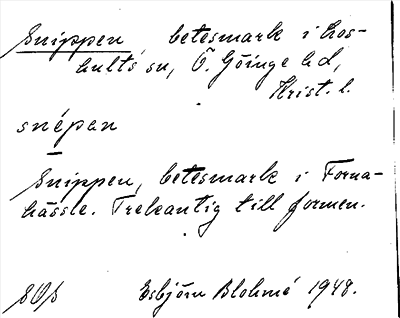 Snippen betesmark i Lös-
hults sn, Ö. Göinge hd,
Krist. l.
snépan
Snippen, betesmark i Forna-
hässle. Trekantig till formen.
SOS Esbjörn Blohmé 1948.